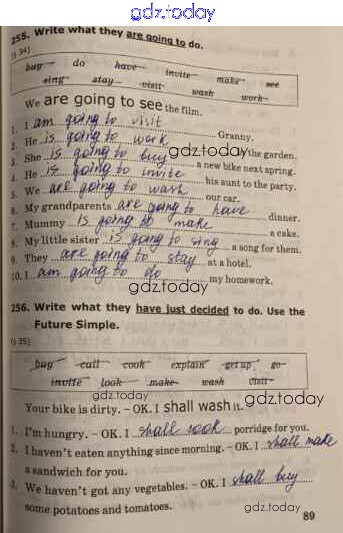 gdz.today
255. Write what they are going to do.
(§ 34)
buy do have invite make see
sing stay visit wash work
We are going to see the film.
1. I am going to visit Granny.
2. He is going to work gdz.today the garden.
3. She is going to buy a new bike next spring.
4. He is going to invite his aunt to the party.
5. We are going to wash our car.
6. My grandparents are going to have dinner.
7. Mummy is going to make a cake.
8. My little sister is going to sing a song for them.
9. They are going to stay at a hotel.
10. I am going to do my homework.
gdz.today gdz.today
256. Write what they have just decided to do. Use the
Future Simple.
(§ 35)
buy call cook explain get up go
invite look make wash visit
gdz.today gdz.today
Your bike is dirty. – OK. I shall wash it.
1. I'm hungry. – OK. I shall cook porridge for you.
2. I haven't eaten anything since morning. – OK. I shall make
a sandwich for you.
3. We haven't got any vegetables. – OK. I shall buy
some potatoes and tomatoes.
89
gdz.today